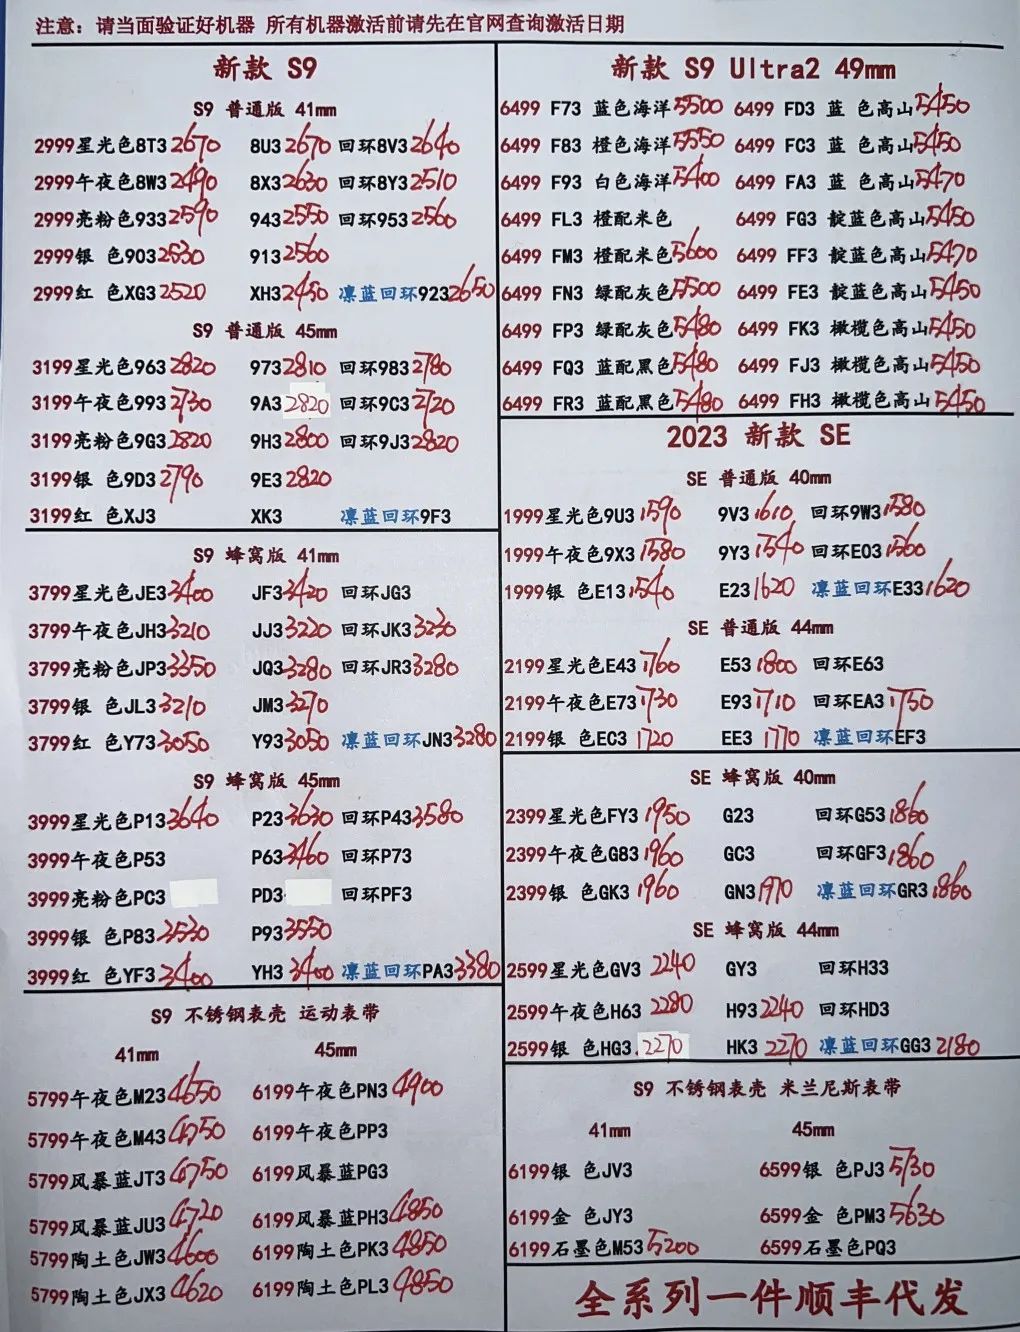 注意：请当面验证好机器 所有机器激活前请先在官网查询激活日期
新款 S9
S9 普通版 41mm
2999星光色8T3 2670 8U3 2670 回环8V3 2640
2999午夜色8W3 2490 8X3 2630 回环8Y3 2510
2999亮粉色933 2590 943 2550 回环953 2560
2999银 色903 2530 913 2560
2999红 色XG3 2520 XH3 2450 凛蓝回环923 2650
S9 普通版 45mm
3199星光色963 2820 973 2810 回环983 2780
3199午夜色993 2730 9A3 2820 回环9C3 2720
3199亮粉色9G3 2820 9H3 2800 回环9J3 2820
3199银 色9D3 2790 9E3 2820
3199红 色XJ3 XK3 凛蓝回环9F3
S9 蜂窝版 41mm
3799星光色JE3 3400 JF3 3420 回环JG3
3799午夜色JH3 3210 JJ3 3220 回环JK3 3230
3799亮粉色JP3 3350 JQ3 3280 回环JR3 3280
3799银 色JL3 3210 JM3 3270
3799红 色Y73 3050 Y93 3050 凛蓝回环JN3 3280
S9 蜂窝版 45mm
3999星光色P13 3640 P23 3630 回环P43 3580
3999午夜色P53 P63 3460 回环P73
3999亮粉色PC3 PD3 回环PF3
3999银 色P83 3530 P93 3550
3999红 色YF3 3400 YH3 3400 凛蓝回环PA3 3380
S9 不锈钢表壳 运动表带
41mm 45mm
5799午夜色M23 4650 6199午夜色PN3 4900
5799午夜色M43 4750 6199午夜色PP3
5799风暴蓝JT3 4750 6199风暴蓝PG3
5799风暴蓝JU3 4720 6199风暴蓝PH3 4850
5799陶土色JW3 4600 6199陶土色PK3 4850
5799陶土色JX3 4620 6199陶土色PL3 4850
新款 S9 Ultra2 49mm
6499 F73 蓝色海洋5500 6499 FD3 蓝 色高山5450
6499 F83 橙色海洋5550 6499 FC3 蓝 色高山5450
6499 F93 白色海洋5400 6499 FA3 蓝 色高山5470
6499 FL3 橙配米色 6499 FG3 靛蓝色高山5450
6499 FM3 橙配米色5600 6499 FF3 靛蓝色高山5470
6499 FN3 绿配灰色5500 6499 FE3 靛蓝色高山5450
6499 FP3 绿配灰色5480 6499 FK3 橄榄色高山5450
6499 FQ3 蓝配黑色5480 6499 FJ3 橄榄色高山5450
6499 FR3 蓝配黑色5480 6499 FH3 橄榄色高山5450
2023 新款 SE
SE 普通版 40mm
1999星光色9U3 1590 9V3 1610 回环9W3 1580
1999午夜色9X3 1580 9Y3 1540 回环E03 1560
1999银 色E13 1540 E23 1620 凛蓝回环E33 1620
SE 普通版 44mm
2199星光色E43 1760 E53 1800 回环E63
2199午夜色E73 1730 E93 1710 回环EA3 1750
2199银 色EC3 1720 EE3 1770 凛蓝回环EF3
SE 蜂窝版 40mm
2399星光色FY3 1950 G23 回环G53 1860
2399午夜色G83 1960 GC3 回环GF3 1860
2399银 色GK3 1960 GN3 1970 凛蓝回环GR3 1860
SE 蜂窝版 44mm
2599星光色GV3 2240 GY3 回环H33
2599午夜色H63 2280 H93 2240 回环HD3
2599银 色HG3 2270 HK3 2270 凛蓝回环GG3 2180
S9 不锈钢表壳 米兰尼斯表带
41mm 45mm
6199银 色JV3 6599银 色PJ3 5730
6199金 色JY3 6599金 色PM3 5630
6199石墨色M53 5200 6599石墨色PQ3
全系列一件顺丰代发